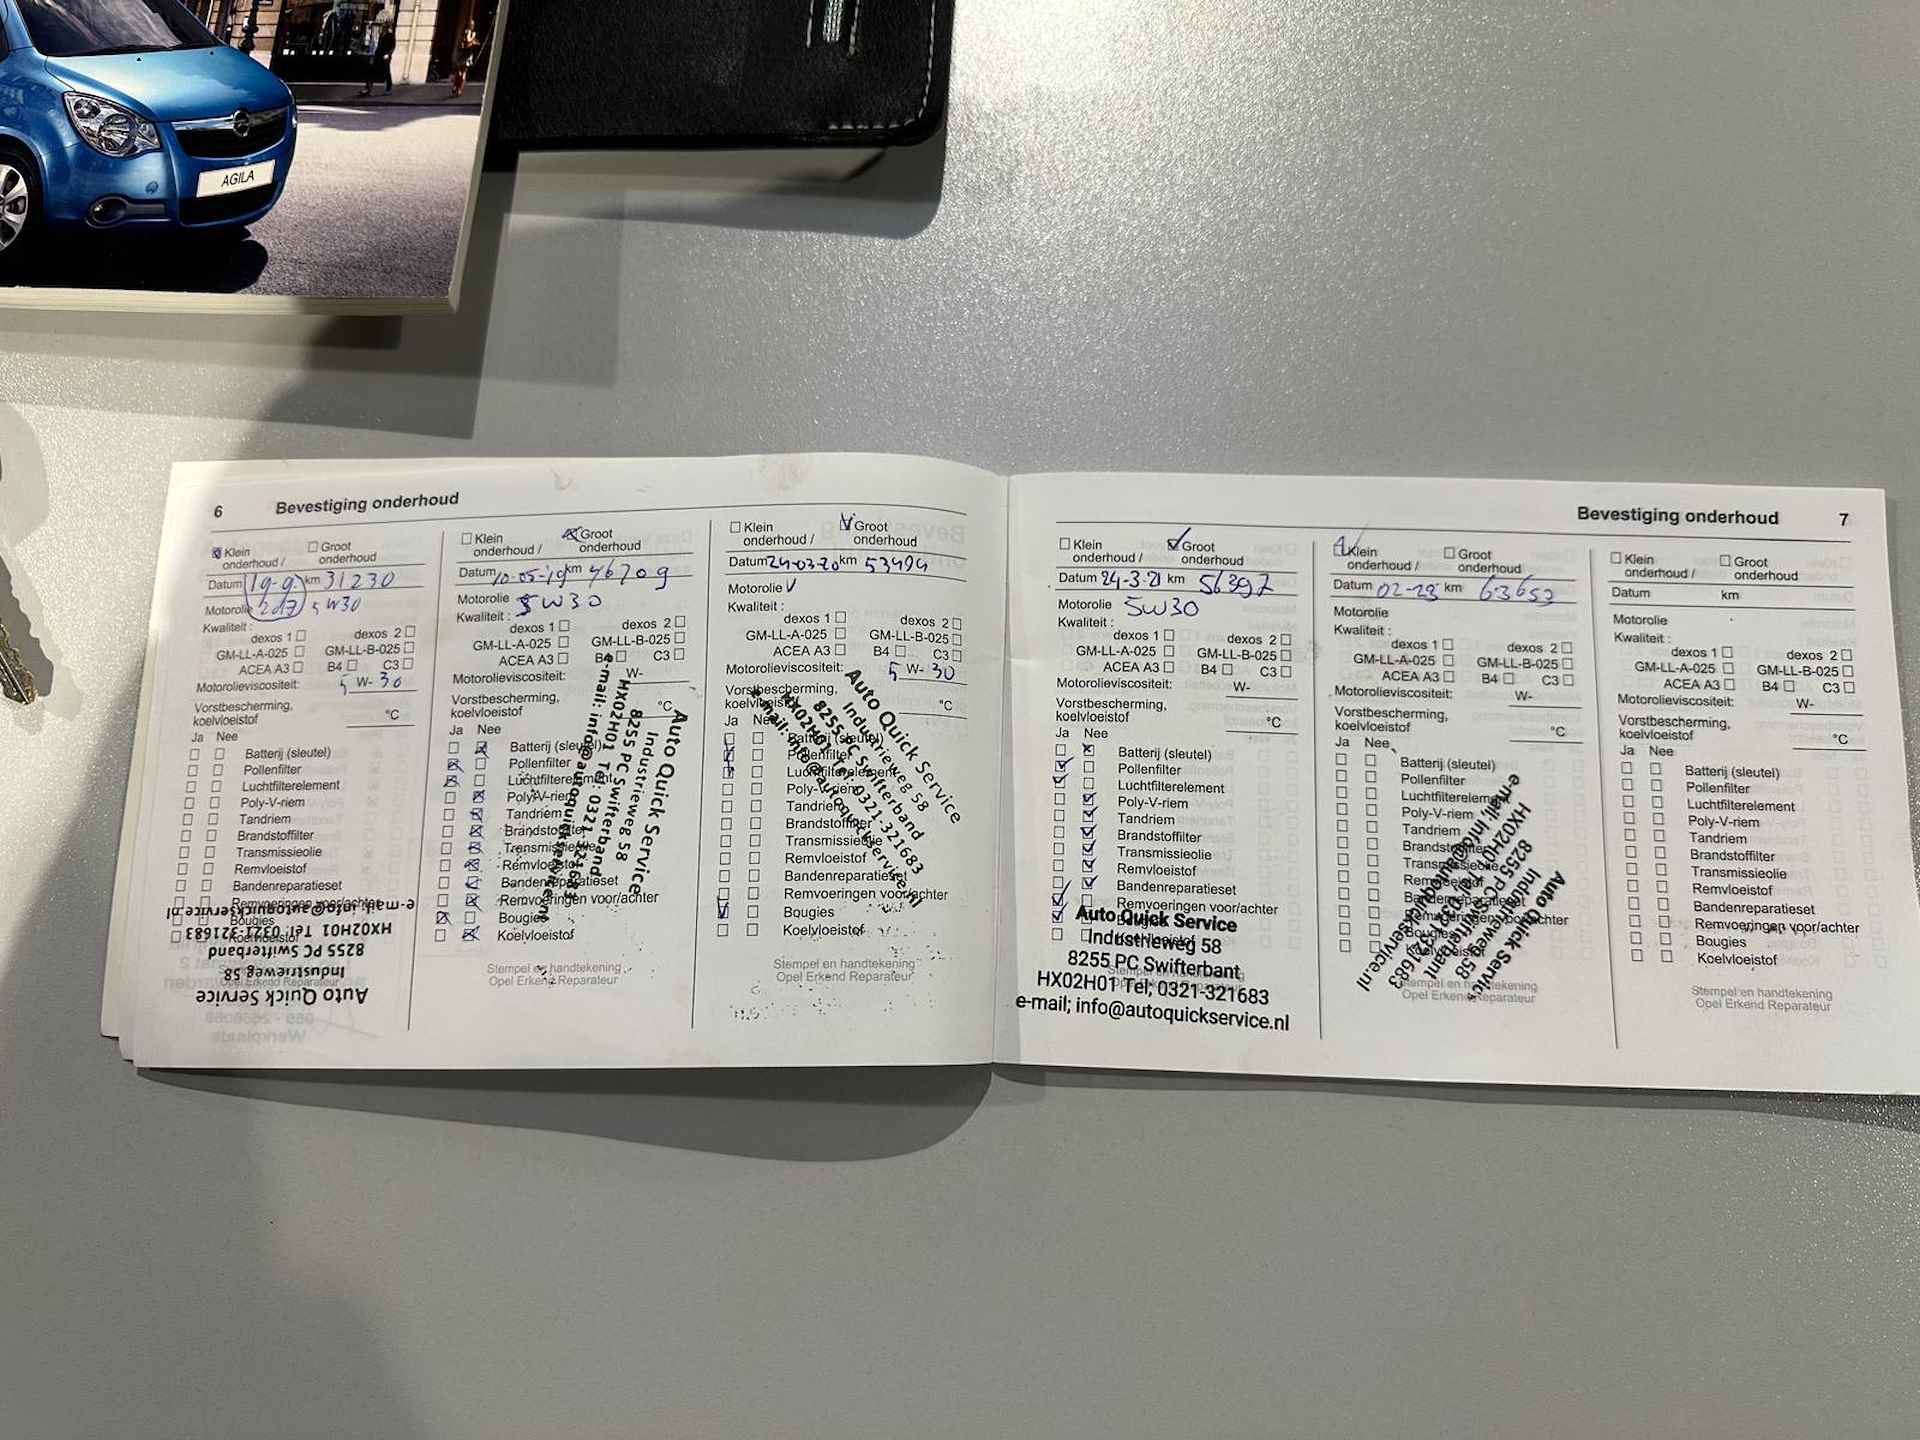 AGILA
6 Bevestiging onderhoud
Klein onderhoud / Groot onderhoud
Datum 19-9 2017 km 31230
Motorolie 5W30
Kwaliteit :
dexos 1 dexos 2
GM-LL-A-025 GM-LL-B-025
ACEA A3 B4 C3
Motorolieviscositeit: 5 W- 30
Vorstbescherming,
koelvloeistof °C
Ja Nee
Batterij (sleutel)
Pollenfilter
Luchtfilterelement
Poly-V-riem
Tandriem
Brandstoffilter
Transmissieolie
Remvloeistof
Bandenreparatieset
Remvoeringen voor/achter
Bougies
Koelvloeistof
Stempel en handtekening
Opel Erkend Reparateur
Auto Quick Service
Industrieweg 58
8255 PC Swifterband
HX02H01 Tel: 0321-321683
e-mail: info@autoquickservice.nl
Klein onderhoud / Groot onderhoud
Datum 10-05-19 km 46709
Motorolie 5W30
Kwaliteit :
dexos 1 dexos 2
GM-LL-A-025 GM-LL-B-025
ACEA A3 B4 C3
Motorolieviscositeit: W-
Vorstbescherming,
koelvloeistof °C
Ja Nee
Batterij (sleutel)
Pollenfilter
Luchtfilterelement
Poly-V-riem
Tandriem
Brandstoffilter
Transmissieolie
Remvloeistof
Bandenreparatieset
Remvoeringen voor/achter
Bougies
Koelvloeistof
Stempel en handtekening
Opel Erkend Reparateur
Auto Quick Service
Industrieweg 58
8255 PC Swifterband
HX02H01 Tel: 0321-321683
e-mail: info@autoquickservice.nl
Klein onderhoud / Groot onderhoud
Datum 24-03-20 km 53494
Motorolie V
Kwaliteit :
dexos 1 dexos 2
GM-LL-A-025 GM-LL-B-025
ACEA A3 B4 C3
Motorolieviscositeit: 5 W- 30
Vorstbescherming,
koelvloeistof °C
Ja Nee
Batterij (sleutel)
Pollenfilter
Luchtfilterelement
Poly-V-riem
Tandriem
Brandstoffilter
Transmissieolie
Remvloeistof
Bandenreparatieset
Remvoeringen voor/achter
Bougies
Koelvloeistof
Stempel en handtekening
Opel Erkend Reparateur
Auto Quick Service
Industrieweg 58
8255 PC Swifterband
HX02H01 Tel: 0321-321683
e-mail: info@autoquickservice.nl
Bevestiging onderhoud 7
Klein onderhoud / Groot onderhoud
Datum 24-3-21 km 56397
Motorolie 5W30
Kwaliteit :
dexos 1 dexos 2
GM-LL-A-025 GM-LL-B-025
ACEA A3 B4 C3
Motorolieviscositeit: W-
Vorstbescherming,
koelvloeistof °C
Ja Nee
Batterij (sleutel)
Pollenfilter
Luchtfilterelement
Poly-V-riem
Tandriem
Brandstoffilter
Transmissieolie
Remvloeistof
Bandenreparatieset
Remvoeringen voor/achter
Bougies
Koelvloeistof
Stempel en handtekening
Opel Erkend Reparateur
Auto Quick Service
Industrieweg 58
8255 PC Swifterbant
HX02H01 Tel; 0321-321683
e-mail; info@autoquickservice.nl
Klein onderhoud / Groot onderhoud
Datum 02-23 km 63653
Motorolie
Kwaliteit :
dexos 1 dexos 2
GM-LL-A-025 GM-LL-B-025
ACEA A3 B4 C3
Motorolieviscositeit: W-
Vorstbescherming,
koelvloeistof °C
Ja Nee
Batterij (sleutel)
Pollenfilter
Luchtfilterelement
Poly-V-riem
Tandriem
Brandstoffilter
Transmissieolie
Remvloeistof
Bandenreparatieset
Remvoeringen voor/achter
Bougies
Koelvloeistof
Stempel en handtekening
Opel Erkend Reparateur
Auto Quick Service
Industrieweg 58
8255 PC Swifterbant
HX02H01 Tel; 0321-321683
e-mail; info@autoquickservice.nl
Klein onderhoud / Groot onderhoud
Datum km
Motorolie
Kwaliteit :
dexos 1 dexos 2
GM-LL-A-025 GM-LL-B-025
ACEA A3 B4 C3
Motorolieviscositeit: W-
Vorstbescherming,
koelvloeistof °C
Ja Nee
Batterij (sleutel)
Pollenfilter
Luchtfilterelement
Poly-V-riem
Tandriem
Brandstoffilter
Transmissieolie
Remvloeistof
Bandenreparatieset
Remvoeringen voor/achter
Bougies
Koelvloeistof
Stempel en handtekening
Opel Erkend Reparateur